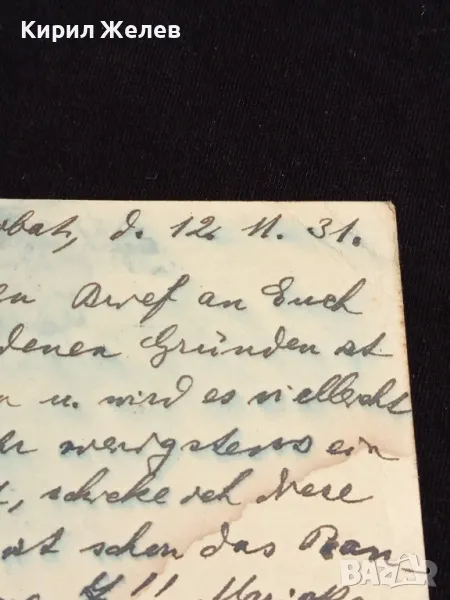 Кирил Желев
bat, d. 12. 11. 31.
en Brief an Euch
denen Gründen ist
n u. wird es vielleicht
hr wenigstens ein
t, schicke ich diese
ist schon das
bazar